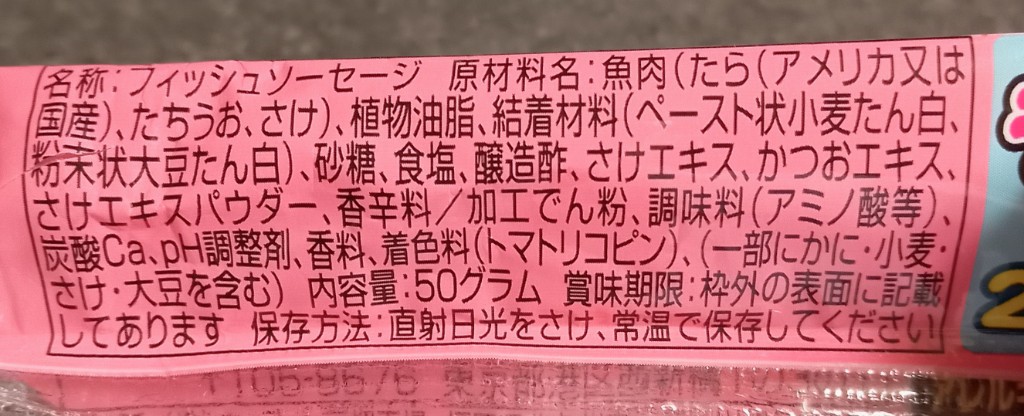 名称:フィッシュソーセージ 原材料名:魚肉(たら(アメリカ又は
国産)、たちうお、さけ)、植物油脂、結着材料(ペースト状小麦たん白、
粉末状大豆たん白)、砂糖、食塩、醸造酢、さけエキス、かつおエキス、
さけエキスパウダー、香辛料/加工でん粉、調味料(アミノ酸等)、
炭酸Ca、pH調整剤、香料、着色料(トマトリコピン)、(一部にかに・小麦・
さけ・大豆を含む) 内容量:50グラム 賞味期限:枠外の表面に記載
してあります 保存方法:直射日光をさけ、常温で保存してください
105-8676 東京都港区西新橋
2